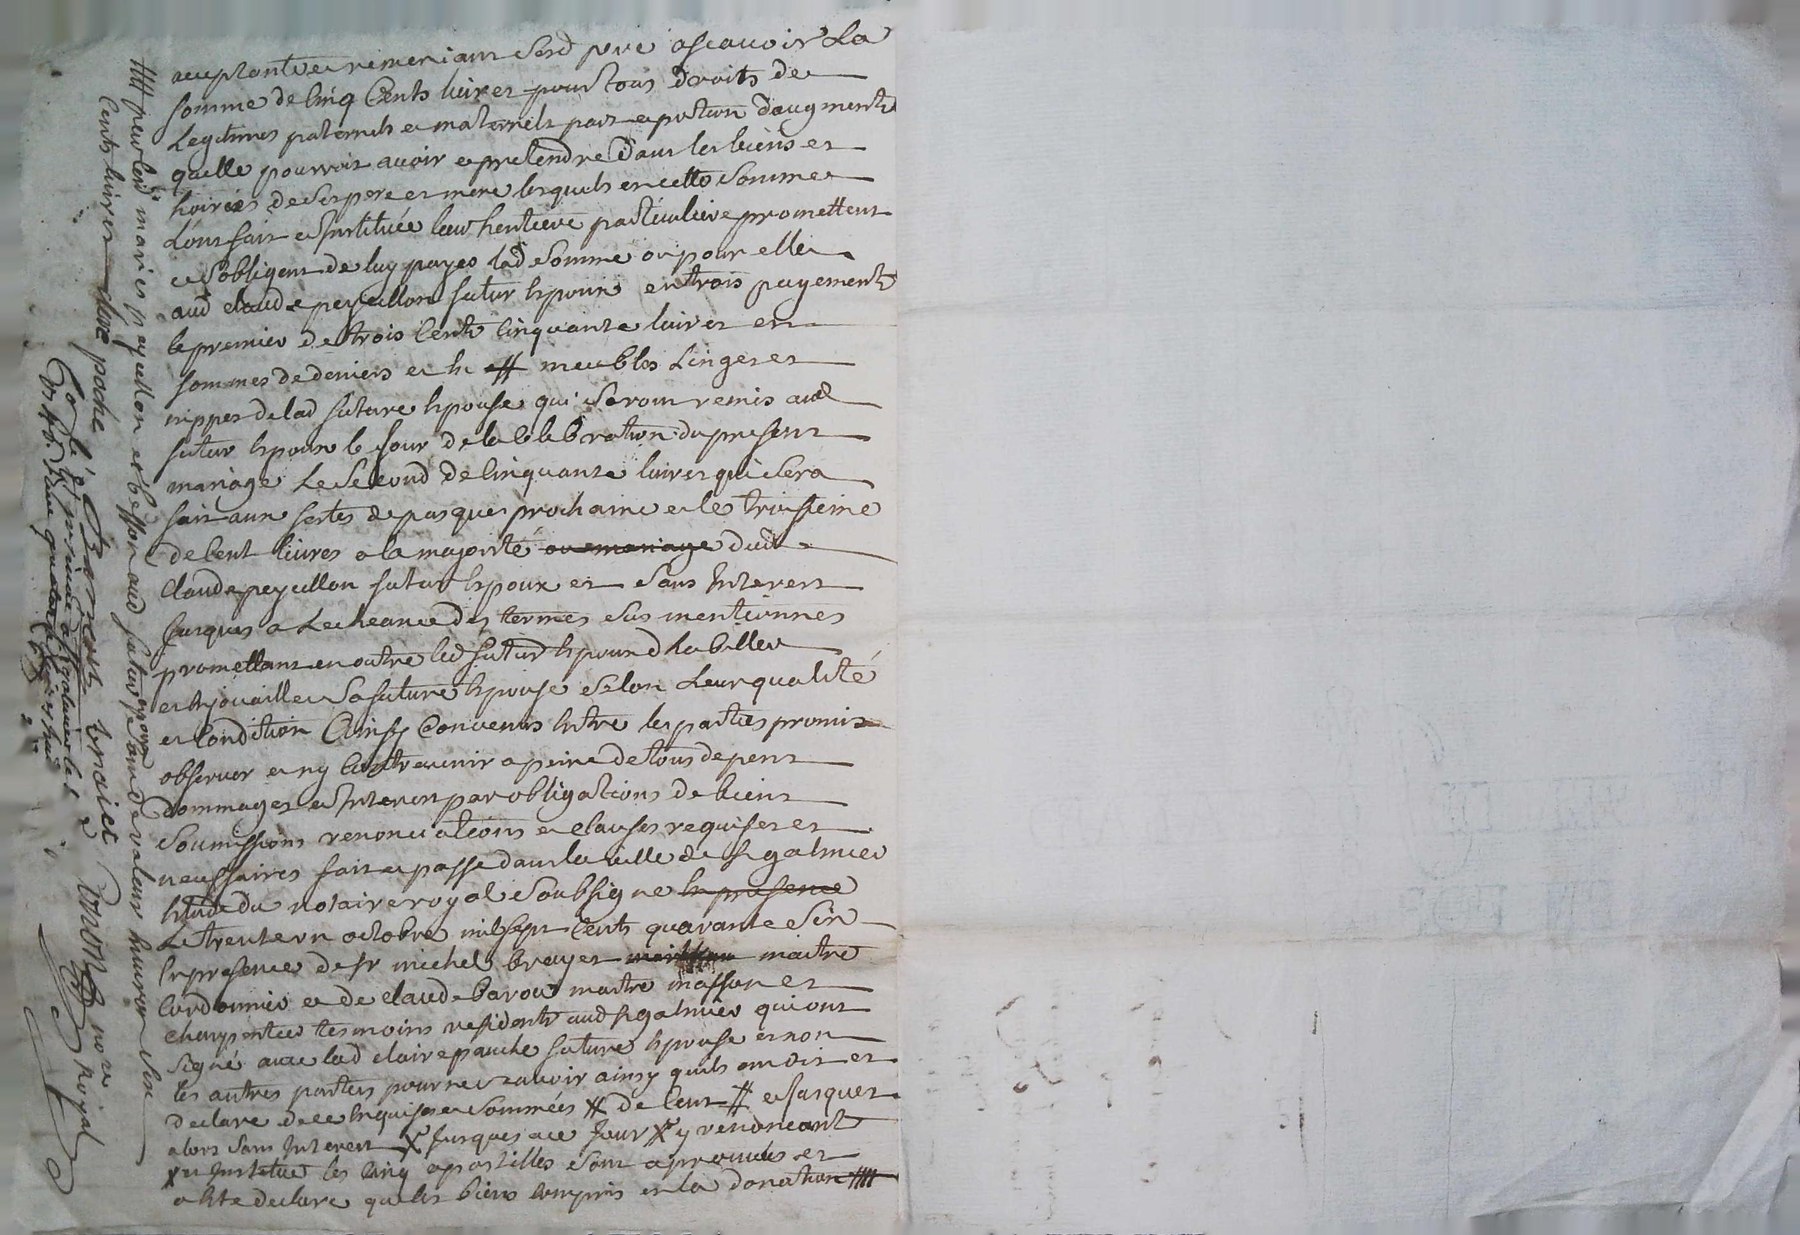 acceptante et remerciant sond pere ascavoir La
somme de Cinq Cents livres pour tous droits de
Legitimes paternels et maternels part et portion daugments
quelle pourroit avoir et pretendre Dans les biens et
hoiries de ses pere et mere lesquels en cette Somme
Lont fait et Instituée leur heritiere particuliere promettent
et sobligent de luy payer lad Somme ou pour elle
aud claude peycellon futur Epoux en trois payements
le premier de trois Cents Cinquante livres en
sommes de deniers et en # meubles Linges et
nippes de lad future Epouse qui Seront remis aud
futur Epoux le Jour de la Celebration du present
mariage Le Second de Cinquante livres qui Sera
fait aux festes de pasques prochaine et le troisieme
de Cent livres a la majorité ou mariage dud
Claude peycellon futur Epoux et Sans Interest
Jusques a Lecheance des termes Sus mentionnes
promettant en outre led futur Epoux d'habiller
et Enjouailler Sa future Epouse Selon Leur qualité
et Condition Ainsy Convenus Entre les parties promis
observer et ny Contrevenir a peine de tous depens
dommages et Interest par obligations de biens
Soumissions renonciations et clauses requises et
necessaires fait et passé dans la ville de St galmier
Etude du notaire royal Soubsigné En presence
Le trente un octobre mil sept Cents quarante Six
En presence de Sr michel broyer maitre
Cordonnier et de claude barou maitre masson et
charpentier tesmoins residents aud St galmier qui ont
Signé avec lad claire pauche future Epouse et non
les autres parties pour ne scavoir ainsy quils ont dit et
declaré de ce Enquises et Sommées # de Cent # et Jusques
alors Sans Interest X Jusques a ce Jour X y renoncant
X et Institue les Cinq apostilles Sont aprouvées et
a Esté declaré que les biens compris en la donation ####
#### peur lesd mariés peycellon et besson aud futur epoux Sont de valeur de environ Six
Cents livres clere poche
Barou broiet Ponon no re royal
Controlé a St galmier le